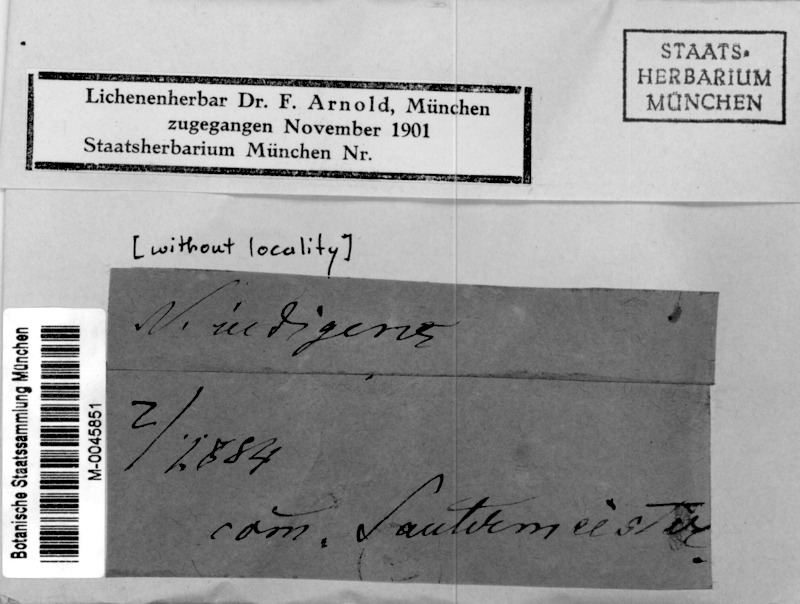 Lichenenherbar Dr. F. Arnold, München
zugegangen November 1901
Staatsherbarium München Nr.
STAATS-
HERBARIUM
MÜNCHEN
[without locality]
N. indigens
2/1884
com. Sautermeister
Botanische Staatssammlung München
M-0045851